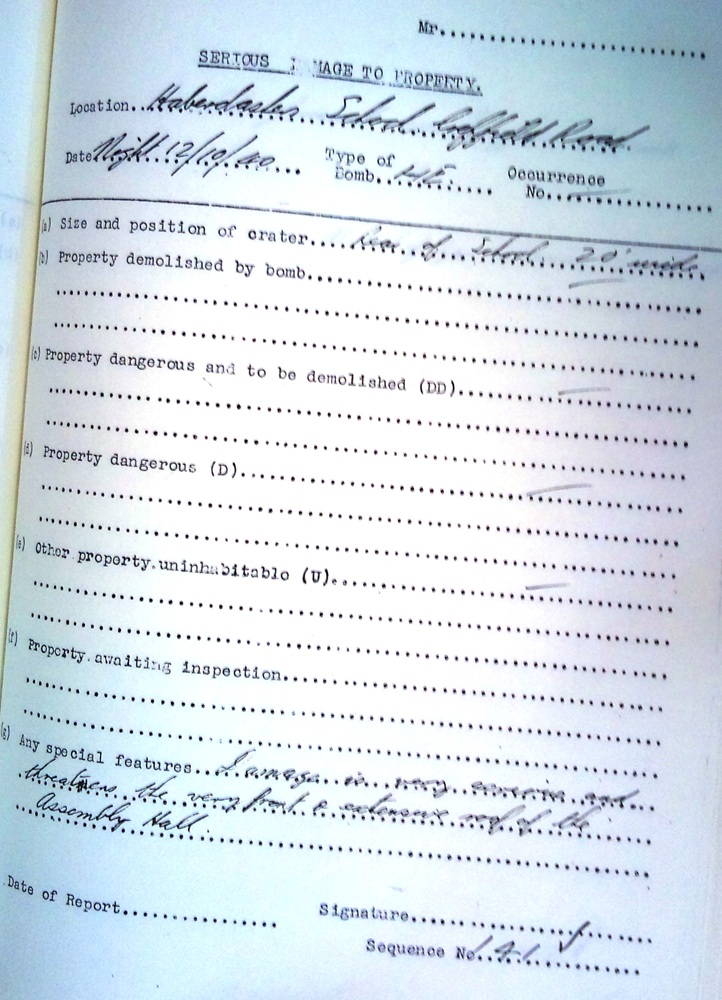 Mr..............................
SERIOUS DAMAGE TO PROPERTY.
Location..Haberdashers School Road
Date Night 12/10/40 Type of Bomb.. H.E. Occurrence No..............
(a) Size and position of crater.... Rear of School 20' wide
(b) Property demolished by bomb.................. —
(c) Property dangerous and to be demolished (DD)........ —
(d) Property dangerous (D)........................ —
(e) Other property uninhabitable (U)................ —
(f) Property awaiting inspection....................
(g) Any special features.. Damage is very and
threatens the very & extensive roof of the
Assembly Hall.
Date of Report.................. Signature..................
Sequence No. 141